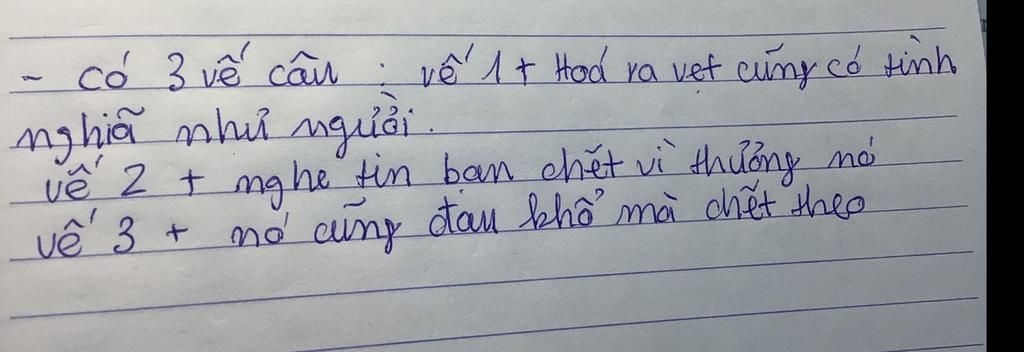 - có 3 vế câu : vế 1 + Hoá ra vẹt cũng có tình
nghĩa như người.
vế 2 + nghe tin bạn chết vì thương nó
vế 3 + nó cũng đau khổ mà chết theo